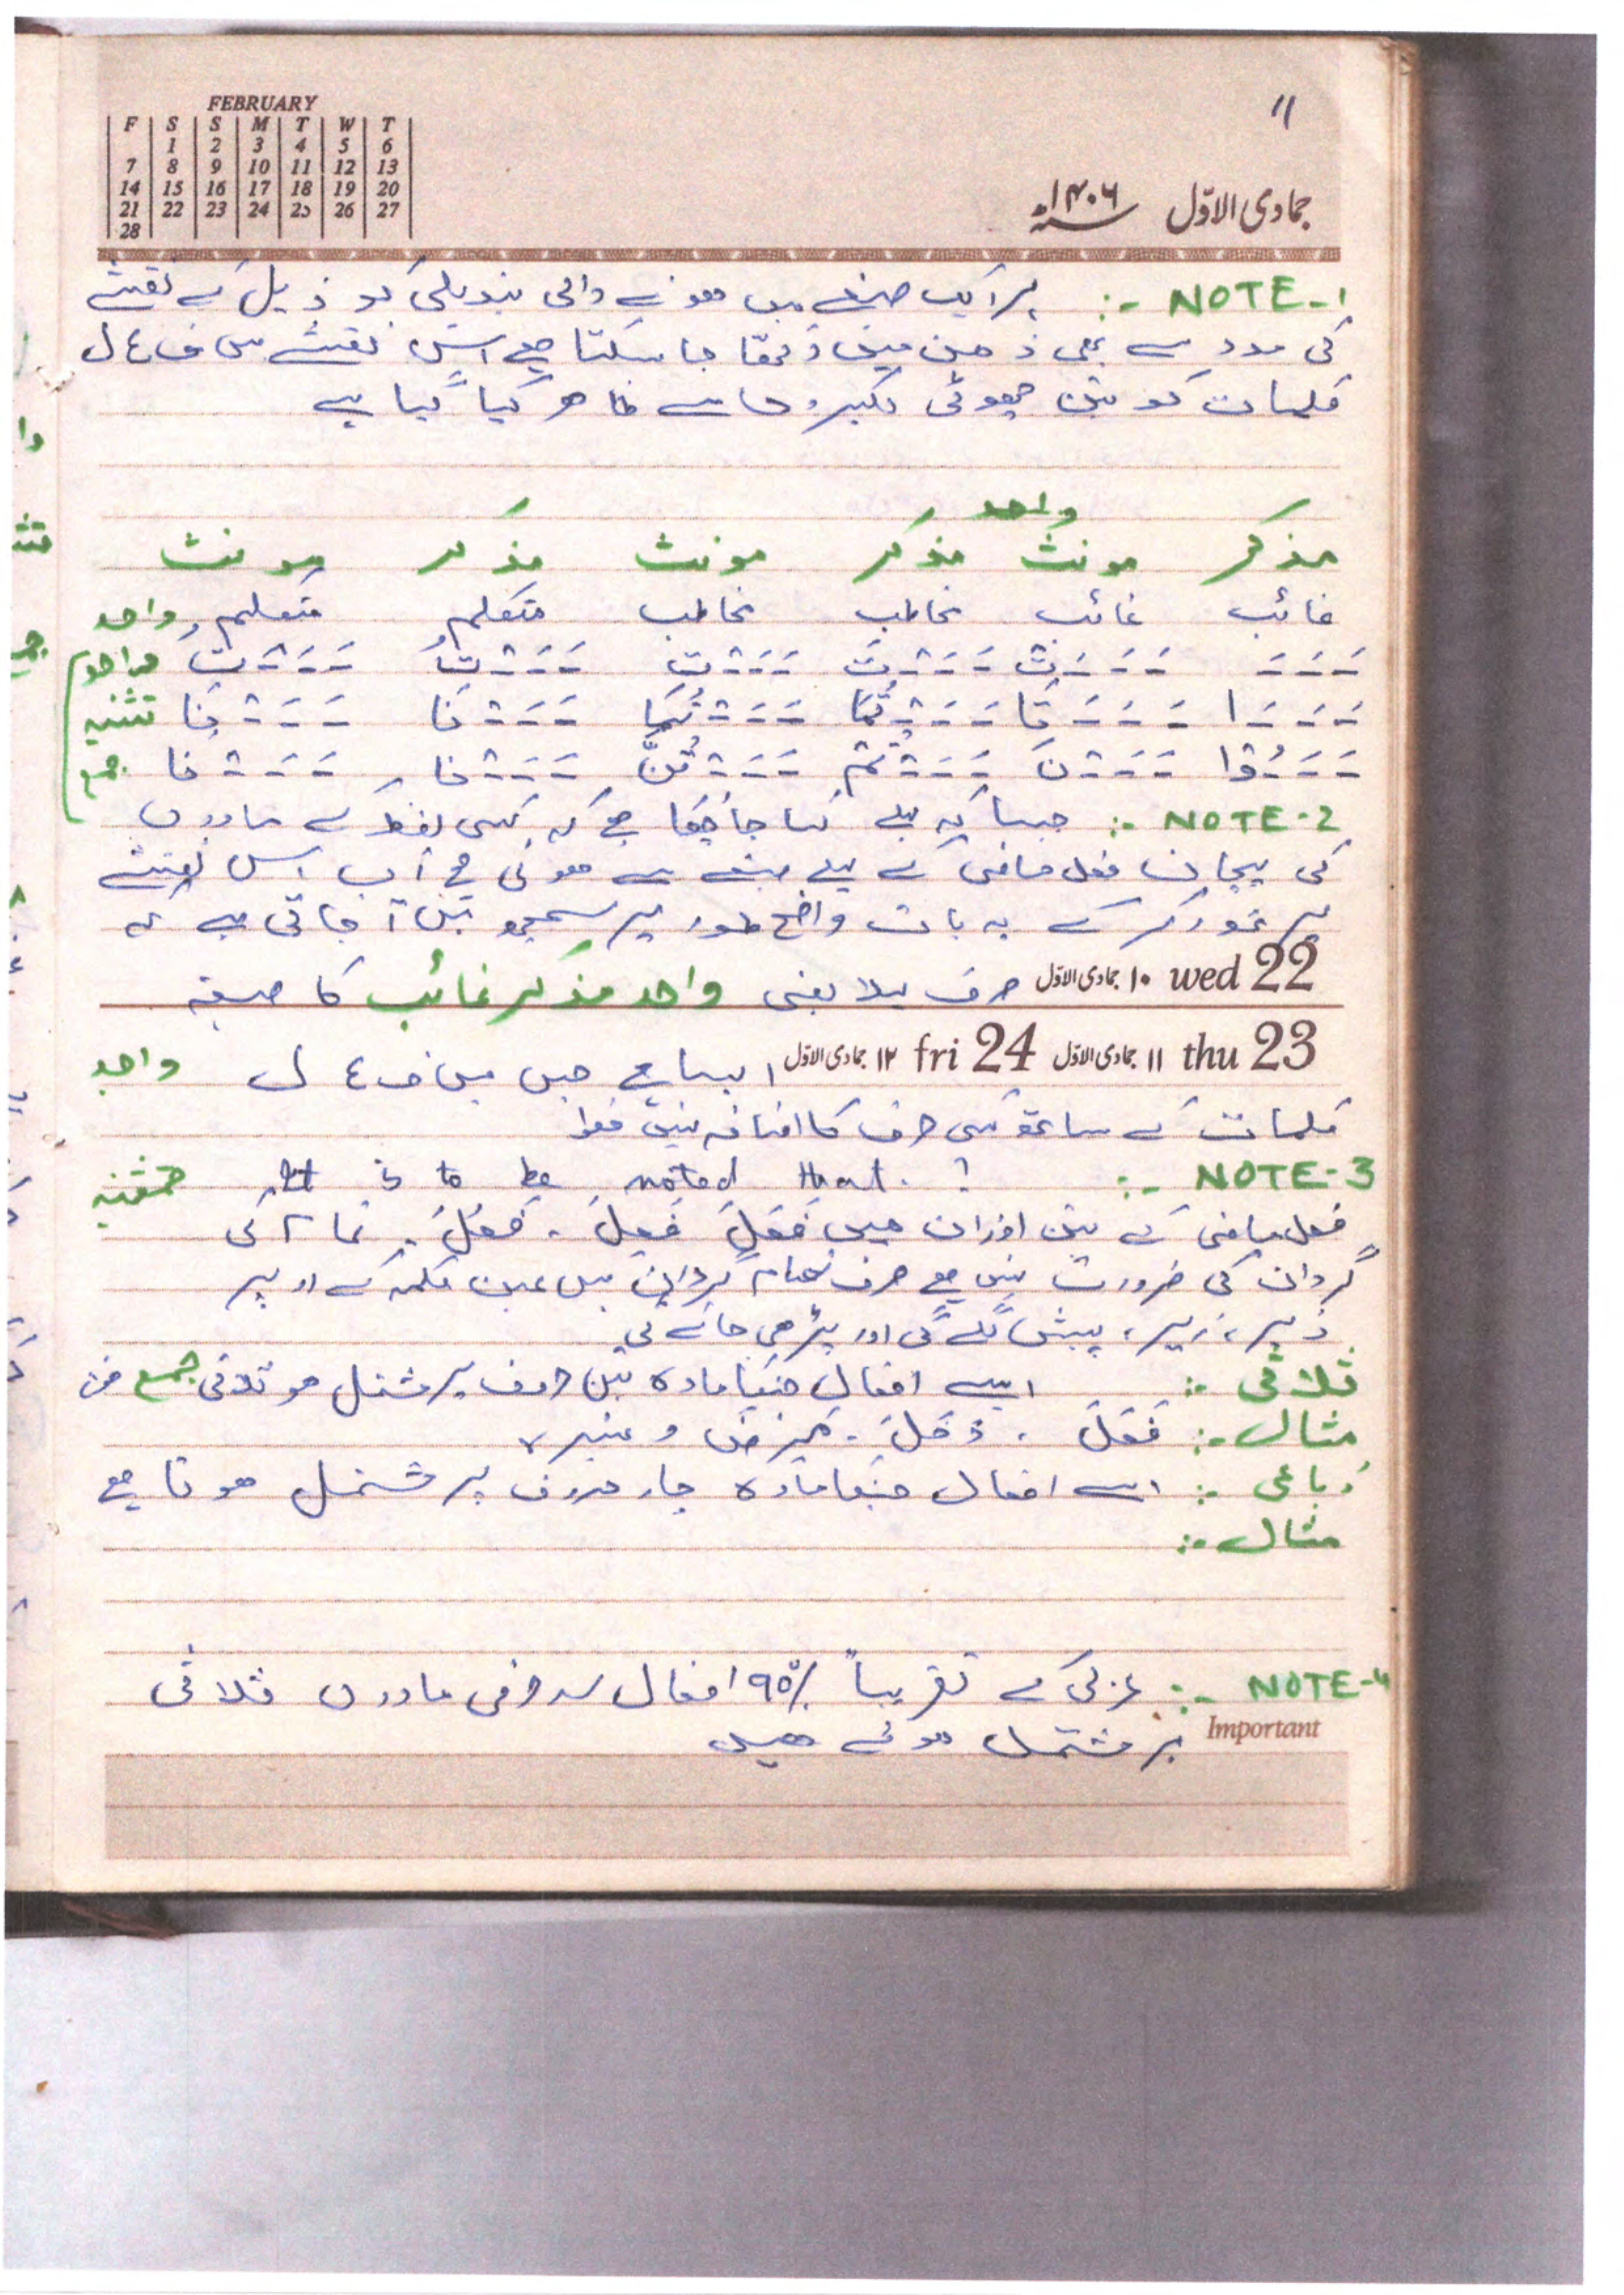 FEBRUARY
F S S M T W T
1 2 3 4 5 6
7 8 9 10 11 12 13
14 15 16 17 18 19 20
21 22 23 24 25 26 27
28
11
جمادی الاوّل ۱۴۰۶ھ
NOTE-1 :- ہر ایک صیغے میں ہونے والی تبدیلی کو ذیل کے نقشے
کی مدد سے بھی ذہن میں رکھا جا سکتا ہے اس نقشے میں ف ع ل
کلمات کو تین چھوٹی لکیروں سے ظاہر کیا گیا ہے
واحد
مذکر مونث مذکر مونث مذکر مونث
غائب غائب مخاطب مخاطب متکلم متکلم واحد
واحد ـ ـ ـ ـ ـ ـ تْ ـ ـ ـ تَ ـ ـ ـ تِ ـ ـ ـ تُ ـ ـ ـ تُ
ـ ـ ـ ا ـ ـ ـ تَا ـ ـ ـ تُمَا ـ ـ ـ تُمَا ـ ـ ـ نَا ـ ـ ـ نَا تثنیہ
ـ ـ ـ ُوْا ـ ـ ـ نَ ـ ـ ـ تُمْ ـ ـ ـ تُنَّ ـ ـ ـ نا ـ ـ ـ نا جمع
NOTE-2 :- جیسا کہ پہلے کہا جا چکا ہے کہ کسی لفظ کے مادوں
کی پہچان فعل ماضی کے پہلے صیغے سے ہوتی ہے اب اس نقشے
پر غور کر کے یہ بات واضح طور پر سمجھ میں آ جاتی ہے کہ
22 wed ۱۰ جمادی الاوّل صرف پہلا یعنی واحد مذکر غائب کا صیغہ
23 thu ۱۱ جمادی الاوّل 24 fri ۱۲ جمادی الاوّل ایسا ہے جس میں ف ع ل واحد
کلمات کے ساتھ کسی حرف کا اضافہ نہیں ہوا
NOTE-3 :- It is to be noted that. !
فعل ماضی کے تین اوزان ہیں فَعَلَ فَعِلَ ۔ فَعُلَ ۔ تمام کی
گردان کی ضرورت نہیں ہے صرف تمام گردان میں عین کلمہ کے اوپر
زبر، زیر، پیش لگے گی اور پڑھی جائے گی
ثلاثی :- ایسے افعال جنکا مادہ تین حروف پر مشتمل ہو ثلاثی جمع
مثال :- فَعَلَ ۔ دَخَلَ ۔ وغیرہ
رباعی :- ایسے افعال جنکا مادہ چار حروف پر مشتمل ہوتا ہے
مثال :-
NOTE-4 :- عربی کے تقریباً ۹۵٪ افعال سہ حرفی مادوں ثلاثی
Important پر مشتمل ہوتے ہیں